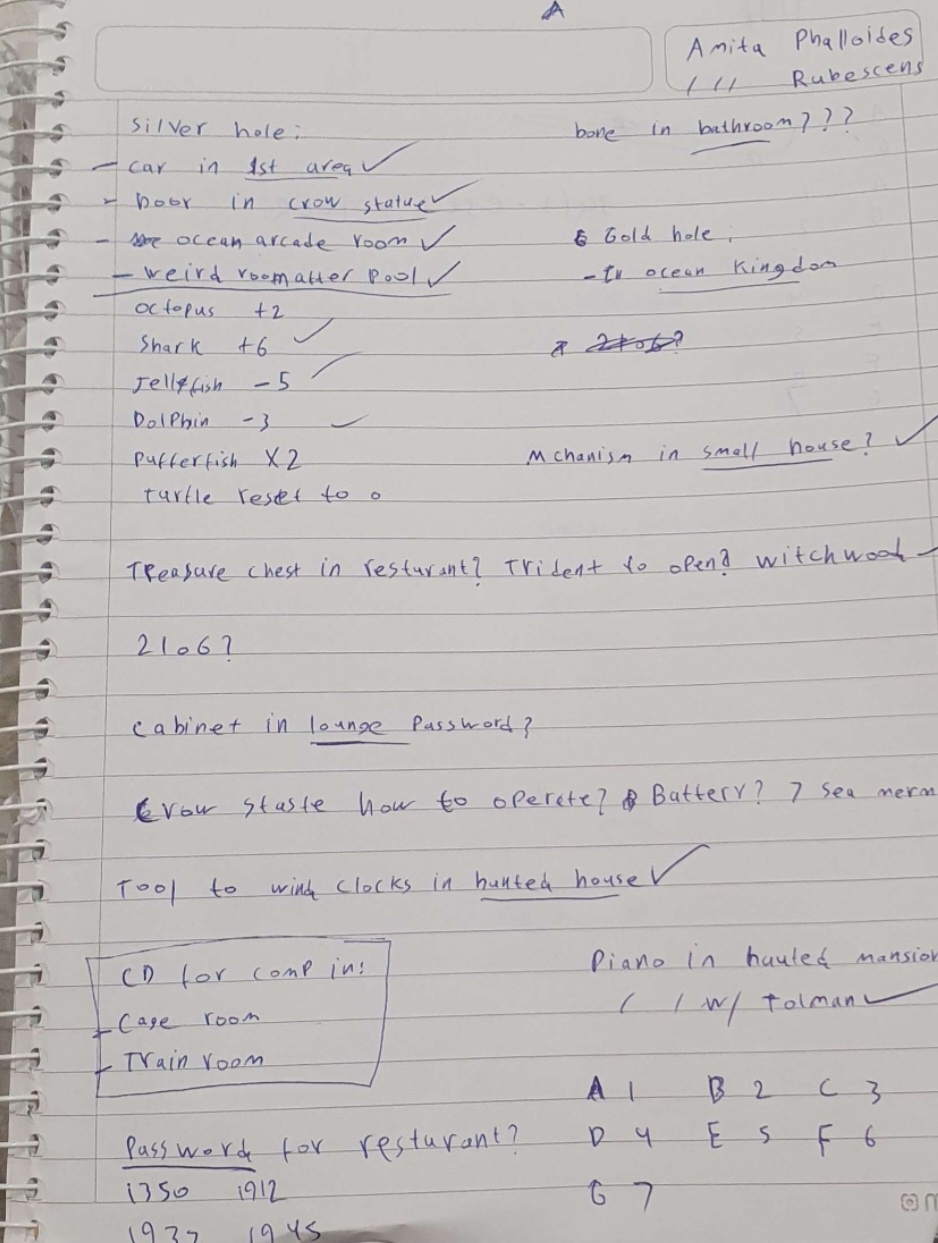 A
Amita Phalloides
/ // Rubescens
Silver hole:
bone in bathroom???
- car in 1st area ✓
- Door in crow statue ✓
- ocean arcade room ✓
Gold hole:
- weird room after pool ✓
- In ocean Kingdom
octopus +2
Shark +6 ✓
2106?
Jellyfish -5 ✓
Dolphin -3 ✓
Pufferfish X2
Mchanism in small house? ✓
turtle reset to 0
Treasure chest in resturant? Trident to open? witchwood
2106?
cabinet in lounge Password?
Crow staste how to operete? Battery? 7 sea merm
Tool to wind clocks in hunted house ✓
CD for comp in:
- Cage room
- Train room
Piano in hauted mansion
( / w/ tolman ✓
A 1 B 2 C 3
Password for resturant?
D 4 E 5 F 6
1350 1912
G 7
1937 1945